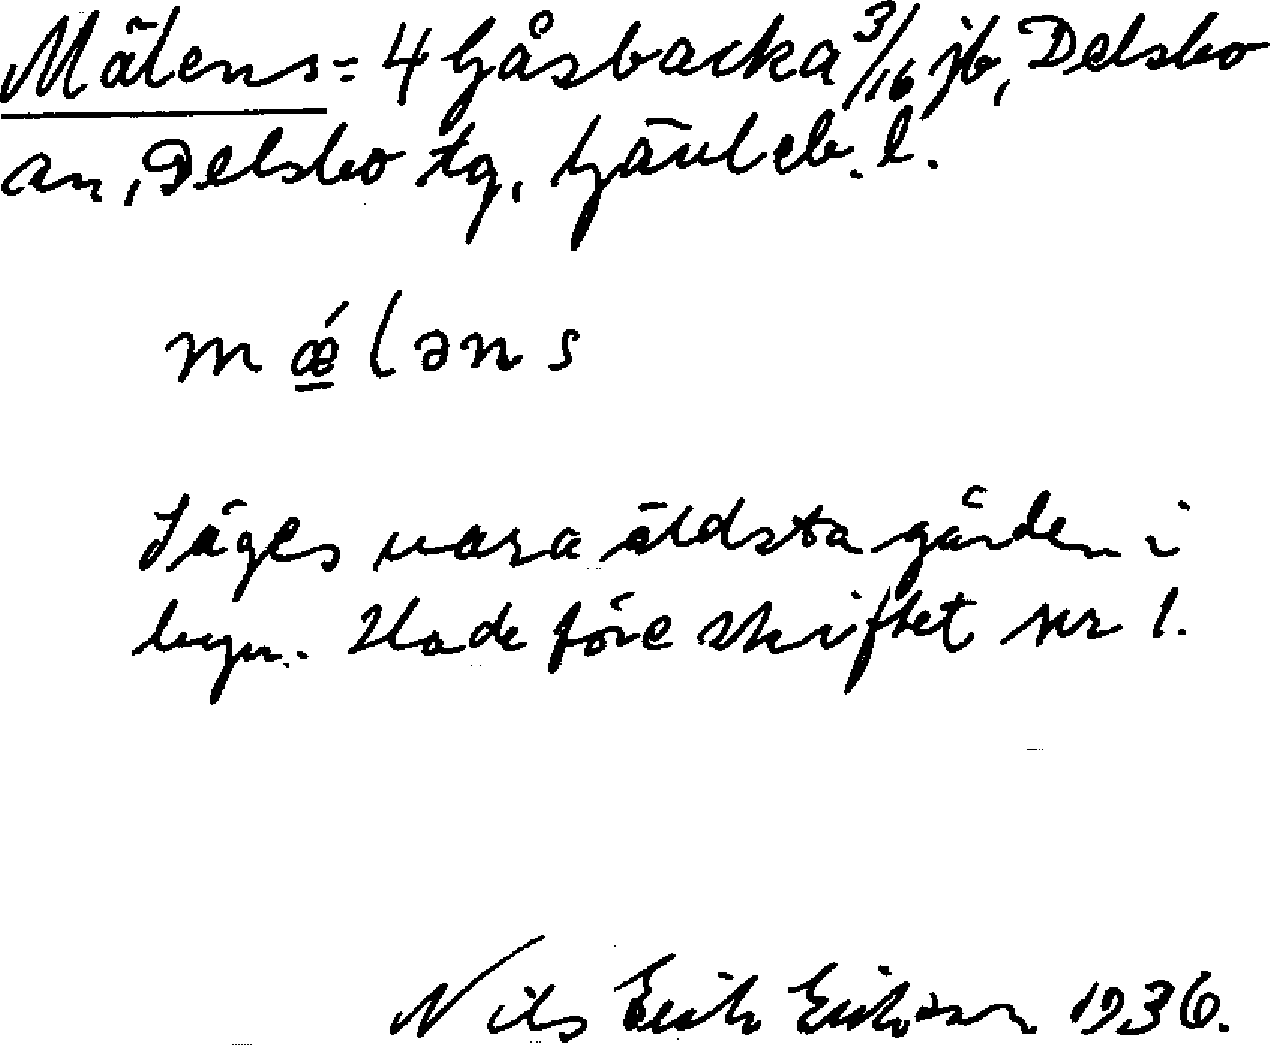 Mälens = 4 Gåsbacka 3/16 jb, Delsbo
sn, Delsbo tg, Gävleb. l.
mǽləns
Säges vara äldsta gården i
byn. Hade före skiftet nr 1.
Nils Erik Eriksson 1936.